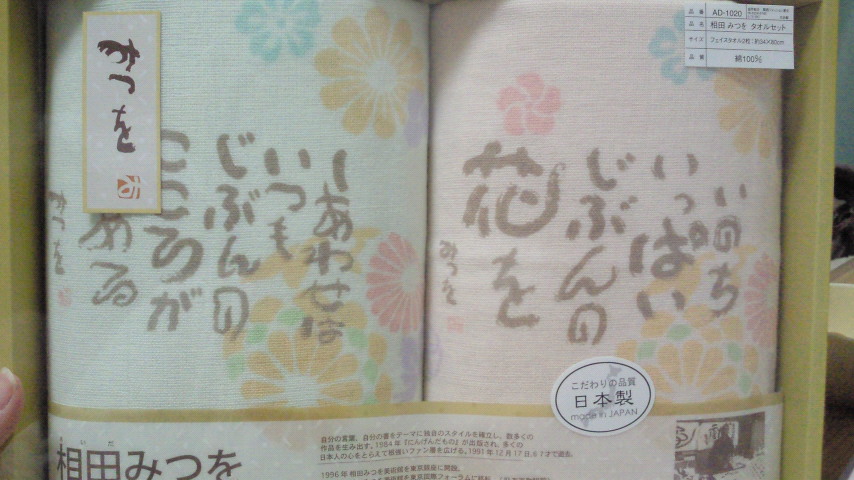 みつを
しあわせは
いつも
じぶんの
こころが
きめる
みつを
いのち
いっぱい
じぶんの
花を
みつを
品番 AD-1020
品名 相田 みつを タオルセット
サイズ フェイスタオル2枚:約34×80cm
品質 綿100%
こだわりの品質
日本製
made in JAPAN
あいだ
相田みつを
自分の言葉、自分の書をテーマに独自のスタイルを確立し、数多くの
作品を生み出す。1984年『にんげんだもの』が出版され、多くの
日本人の心をとらえて根強いファン層を広げる。1991年12月17日、67才で逝去。
1996年 相田みつを美術館を東京銀座に開設。